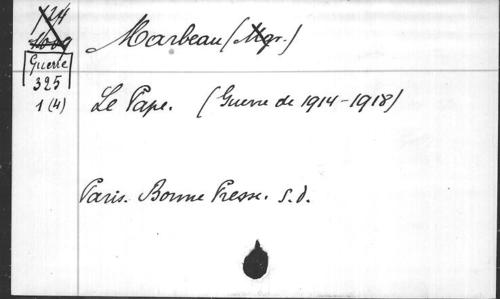 Guerre
325
1 (4)
Marbeau (Mgr.)
Le Pape. (Guerre de 1914-1918)
Paris. Bonne Presse. s.d.